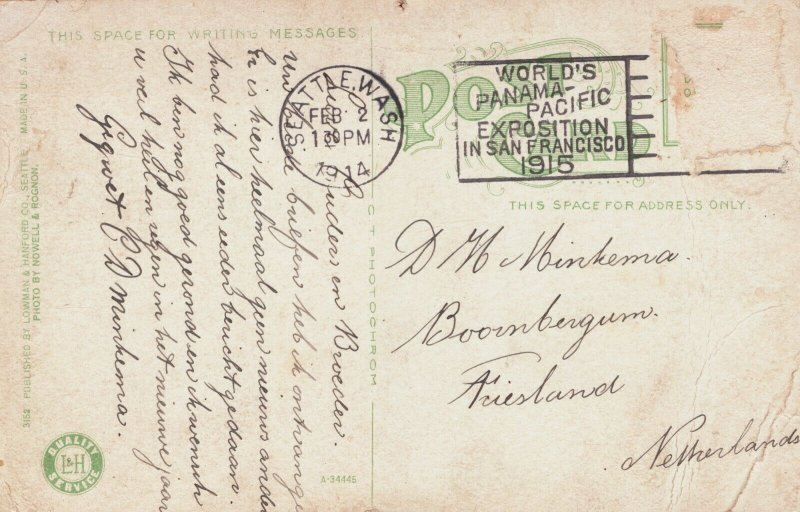 THIS SPACE FOR WRITING MESSAGES
SEATTLE, WASH
FEB 2
130PM
1914
WORLD'S
PANAMA-
PACIFIC
EXPOSITION
IN SAN FRANCISCO
1915
THIS SPACE FOR ADDRESS ONLY.
Ouders en Broeder.
Uw beide briefen heb ik ontvange
Er is hier heelmaal geen nieuws ander
had ik al eens eeder bericht gedaan.
Ik ben nog goed gezond en ik wensch
u veel heil en zegen in het nieuwe jaar
Gegroet. P D Minkema.
D H Minkema.
Boornbergum.
Friesland
Netherlands
3152 PUBLISHED BY LOWMAN & HANFORD CO., SEATTLE. MADE IN U.S.A.
PHOTO BY NOWELL & ROGNON.
QUALITY
L&H
SERVICE
A-34445
PHOTOCHROM